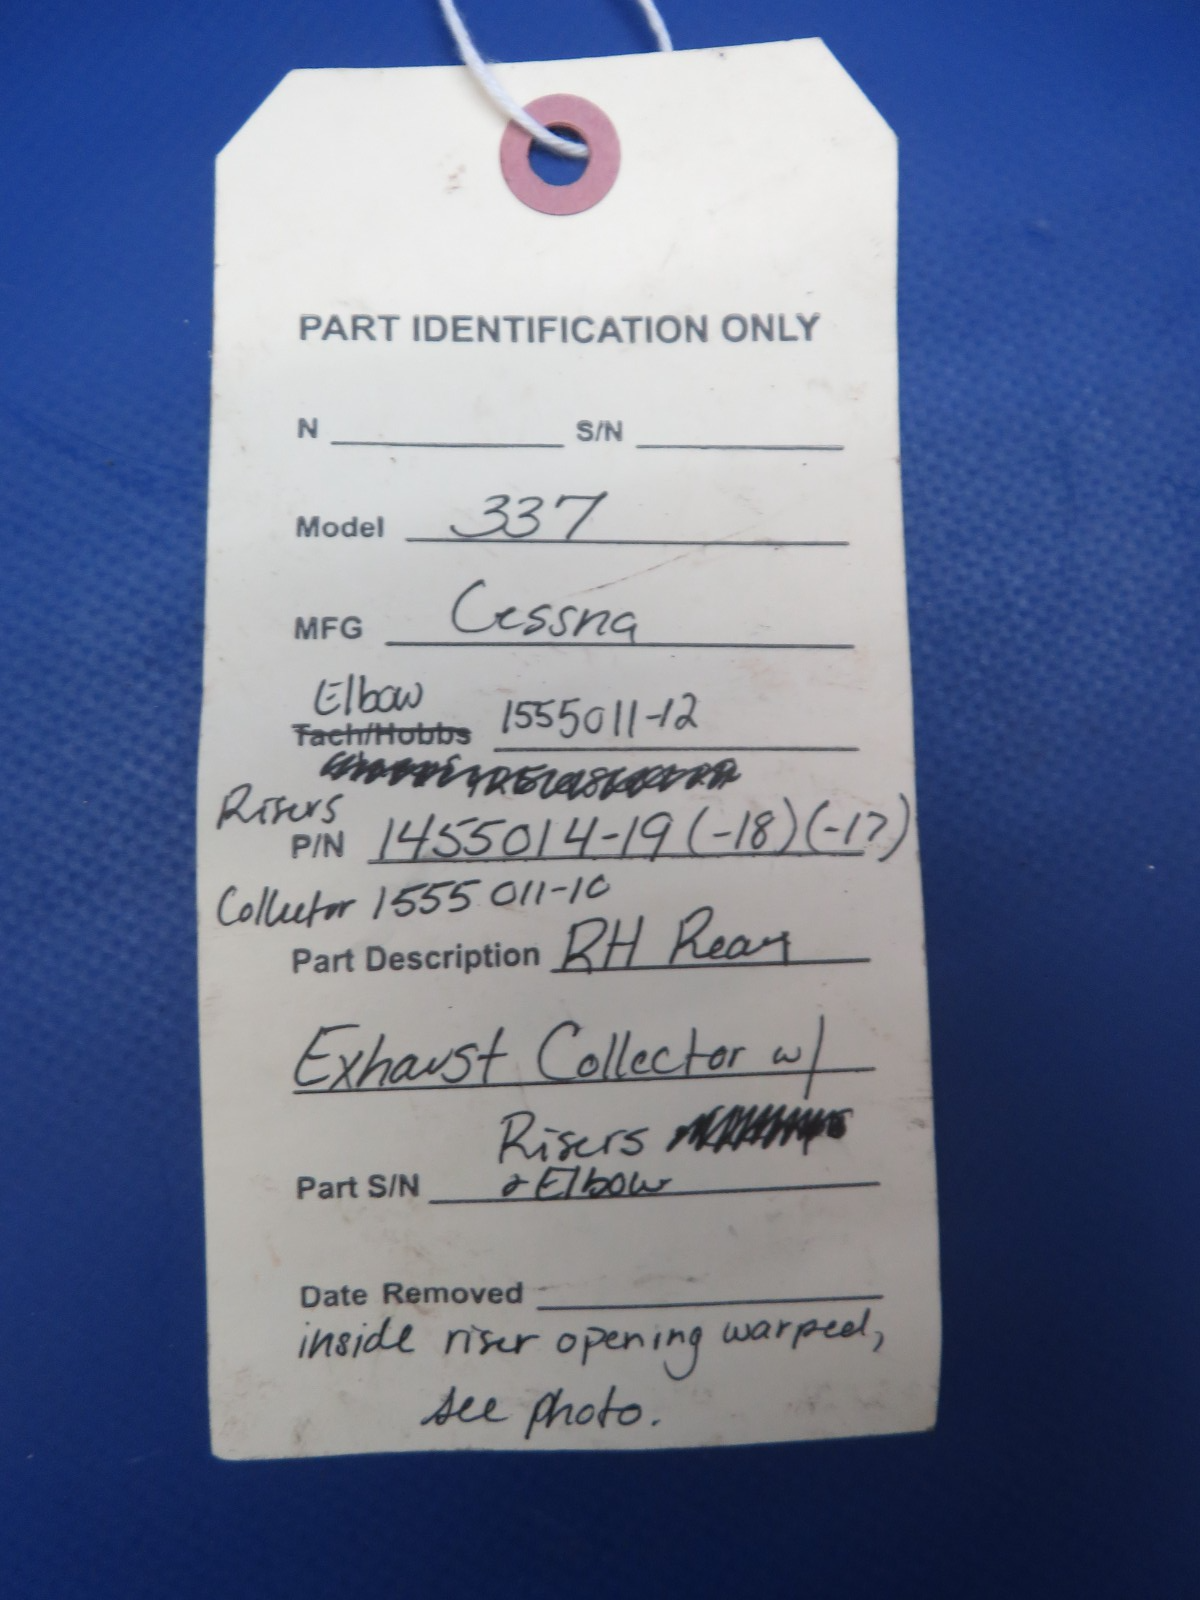 PART IDENTIFICATION ONLY
N S/N
Model 337
MFG Cessna
Elbow
Tach/Hobbs 1555011-12
Risers
P/N 1455014-19 (-18) (-17)
Collector 1555011-10
Part Description RH Rear
Exhaust Collector w/
Risers
Part S/N & Elbow
Date Removed
inside riser opening warped,
see photo.